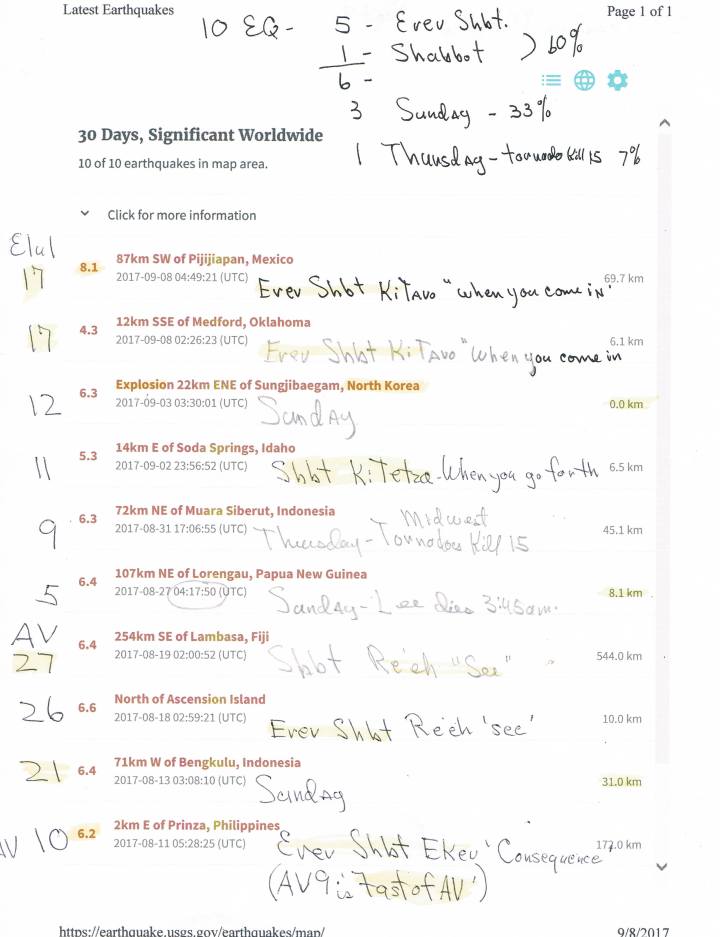 Latest Earthquakes
Page 1 of 1
10 EQ - 5 - Erev Shbt.
1 - Shabbot ) 60%
6 -
3 Sunday - 33%
1 Thursday - tornado kill 15 7%
30 Days, Significant Worldwide
10 of 10 earthquakes in map area.
Click for more information
Elul
17
8.1
87km SW of Pijijiapan, Mexico
2017-09-08 04:49:21 (UTC)
69.7 km
Erev Shbt KiTavo "when you come in"
17
4.3
12km SSE of Medford, Oklahoma
2017-09-08 02:26:23 (UTC)
6.1 km
Erev Shbt KiTavo "When you come in
12
6.3
Explosion 22km ENE of Sungjibaegam, North Korea
2017-09-03 03:30:01 (UTC)
0.0 km
Sunday
11
5.3
14km E of Soda Springs, Idaho
2017-09-02 23:56:52 (UTC)
6.5 km
Shbt KiTetze - When you go forth
9
6.3
72km NE of Muara Siberut, Indonesia
2017-08-31 17:06:55 (UTC)
45.1 km
Midwest
Thursday - Tornodoes Kill 15
5
6.4
107km NE of Lorengau, Papua New Guinea
2017-08-27 04:17:50 (UTC)
8.1 km
Sunday - Lee dies 3:45am.
AV
27
6.4
254km SE of Lambasa, Fiji
2017-08-19 02:00:52 (UTC)
544.0 km
Shbt Re'eh "See"
26
6.6
North of Ascension Island
2017-08-18 02:59:21 (UTC)
10.0 km
Erev Shbt Re'eh 'see'
21
6.4
71km W of Bengkulu, Indonesia
2017-08-13 03:08:10 (UTC)
31.0 km
Sunday
AV 10
6.2
2km E of Prinza, Philippines
2017-08-11 05:28:25 (UTC)
172.0 km
Erev Shbt EKev 'Consequence'
(AV 9 is 'Fast of AV')
https://earthquake.usgs.gov/earthquakes/map/
9/8/2017